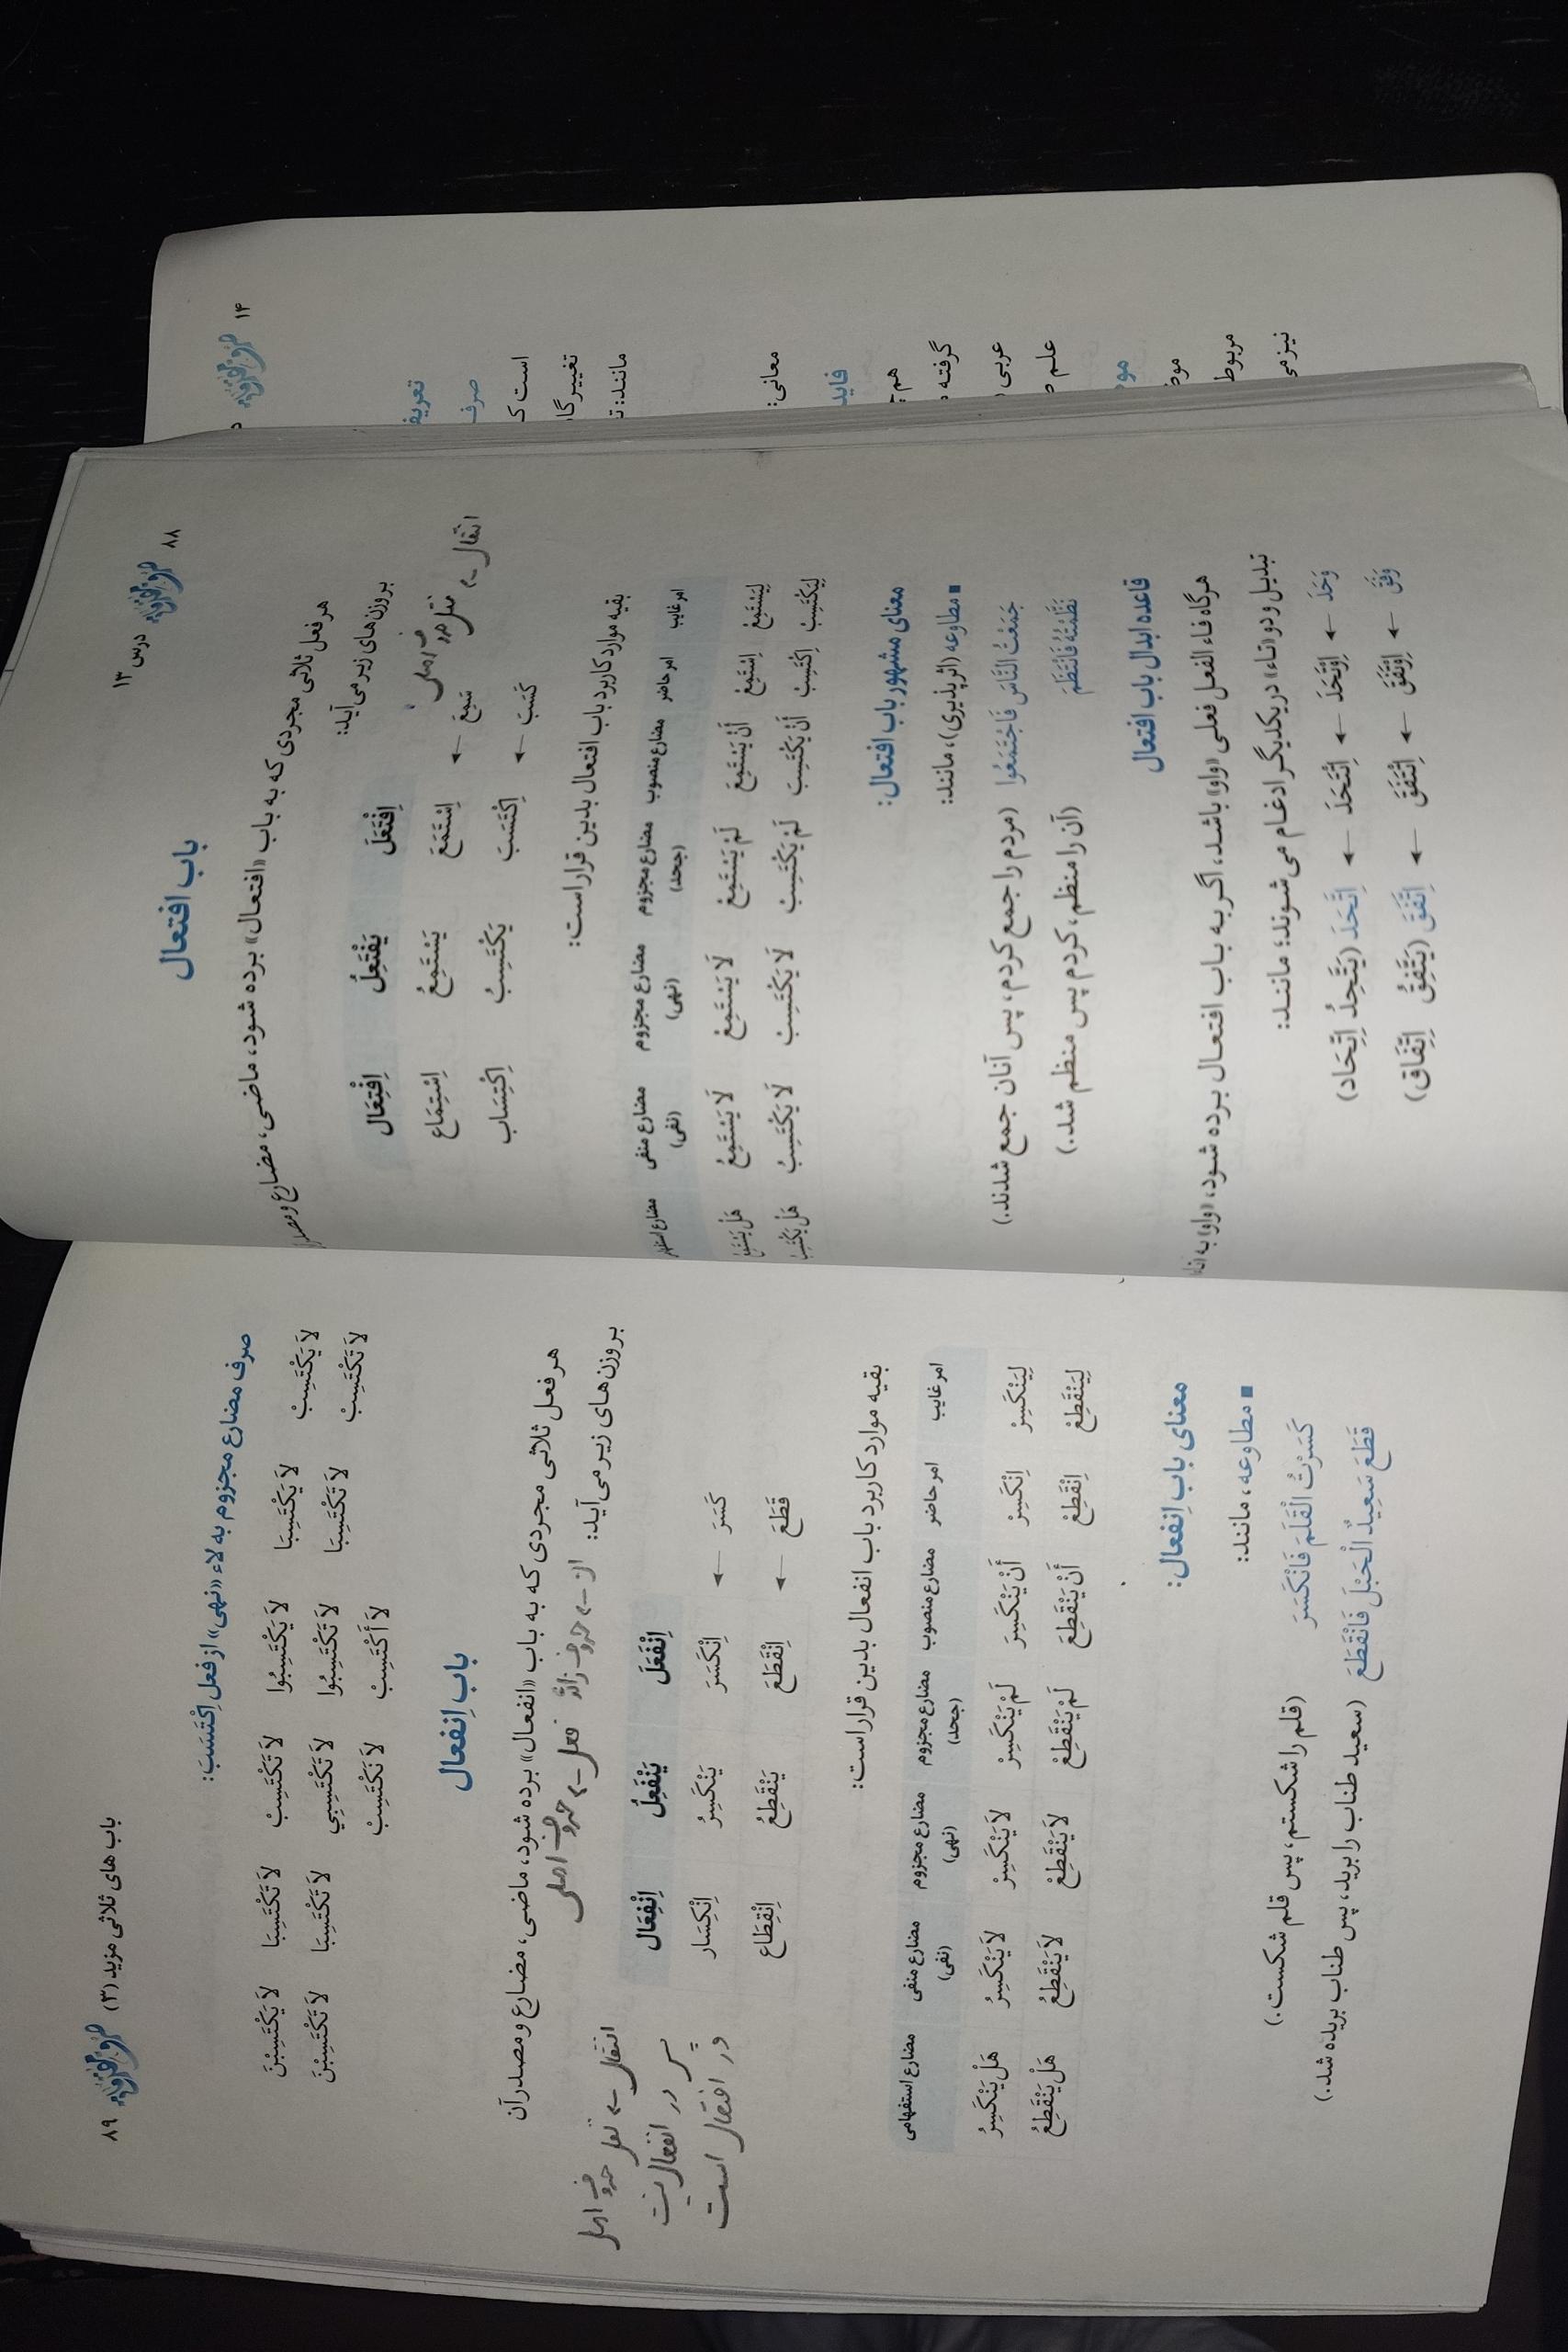 درس ۱۳ ۸۸
باب افتعال
هر فعل ثلاثی مجردی که به باب «افتعال» برده شود، ماضی، مضارع و مصدر
بر وزن‌های زیر می‌آید:
اِفْتَعَلَ يَفْتَعِلُ اِفْتِعَال
سَمِعَ ← اِسْتَمَعَ يَسْتَمِعُ اِسْتِمَاع
كَسَبَ ← اِكْتَسَبَ يَكْتَسِبُ اِكْتِسَاب
انتقال
نقل حروف اصلی
بقیه موارد کاربرد باب افتعال بدین قرار است:
امر غایب امر حاضر مضارع منصوب مضارع مجزوم (جحد) مضارع مجزوم (نهی) مضارع منفی (نفی) مضارع استفهام
لِيَسْتَمِعْ اِسْتَمِعْ أَنْ يَسْتَمِعَ لَمْ يَسْتَمِعْ لَا يَسْتَمِعْ لَا يَسْتَمِعُ هَلْ يَسْتَمِعُ
لِيَكْتَسِبْ اِكْتَسِبْ أَنْ يَكْتَسِبَ لَمْ يَكْتَسِبْ لَا يَكْتَسِبْ لَا يَكْتَسِبُ هَلْ يَكْتَسِبُ
معنای مشهور باب افتعال:
■ مطاوعه (اثرپذیری)، مانند:
جَمَعْتُ النَّاسَ فَاجْتَمَعُوا (مردم را جمع کردم، پس آنان جمع شدند.)
نَظَّمْتُهُ فَانْتَظَمَ (آن را منظم، کردم پس منظم شد.)
قاعده ابدال باب افتعال
هرگاه فاء الفعل فعلی «واو» باشد، اگر به باب افتعال برده شود، «واو» به «تا»
تبدیل و دو «تاء» در یکدیگر ادغام می‌شوند؛ مانند:
وَحَدَ ← اِوْتَحَدَ ← اِتْتَحَدَ ← اِتَّحَدَ (يَتَّحِدُ اِتِّحَاد)
وَفَقَ ← اِوْتَفَقَ ← اِتْتَفَقَ ← اِتَّفَقَ (يَتَّفِقُ اِتِّفَاق)
۸۹ باب های ثلاثی مزید (۳)
صرف مضارع مجزوم به لاء «نهی» از فعل اِكْتَسَبَ:
لَا يَكْتَسِبْ لَا يَكْتَسِبَا لَا يَكْتَسِبُوا لَا تَكْتَسِبْ لَا تَكْتَسِبَا لَا يَكْتَسِبْنَ
لَا تَكْتَسِبْ لَا تَكْتَسِبَا لَا تَكْتَسِبُوا لَا تَكْتَسِبِي لَا تَكْتَسِبَا لَا تَكْتَسِبْنَ
لَا أَكْتَسِبْ لَا نَكْتَسِبْ
باب اِنفعال
هر فعل ثلاثی مجردی که به باب «انفعال» برده شود، ماضی، مضارع و مصدر آن
بر وزن‌های زیر می‌آید:
ان ← حروف زائد فعل ← حروف اصلی
انتقال ← نقل حروف اصلی
پس در انفعال نیست
در افتعال است
اِنْفَعَلَ يَنْفَعِلُ اِنْفِعَال
كَسَرَ ← اِنْكَسَرَ يَنْكَسِرُ اِنْكِسَار
قَطَعَ ← اِنْقَطَعَ يَنْقَطِعُ اِنْقِطَاع
بقیه موارد کاربرد باب انفعال بدین قرار است:
امر غایب امر حاضر مضارع منصوب مضارع مجزوم (جحد) مضارع مجزوم (نهی) مضارع منفی (نفی) مضارع استفهامی
لِيَنْكَسِرْ اِنْكَسِرْ أَنْ يَنْكَسِرَ لَمْ يَنْكَسِرْ لَا يَنْكَسِرْ لَا يَنْكَسِرُ هَلْ يَنْكَسِرُ
لِيَنْقَطِعْ اِنْقَطِعْ أَنْ يَنْقَطِعَ لَمْ يَنْقَطِعْ لَا يَنْقَطِعْ لَا يَنْقَطِعُ هَلْ يَنْقَطِعُ
معنای باب اِنفعال:
■ مطاوعه، مانند:
كَسَرْتُ الْقَلَمَ فَانْكَسَرَ (قلم را شکستم، پس قلم شکست.)
قَطَعَ سَعِيدٌ الْحَبْلَ فَانْقَطَعَ (سعید طناب را برید، پس طناب بریده شد.)
۱۴
تعریف
صرف
است ک
تغییر گا
مانند: ت
معانی:
فاید
گرفته
عربی
علم
مو
مربوط
نیز می